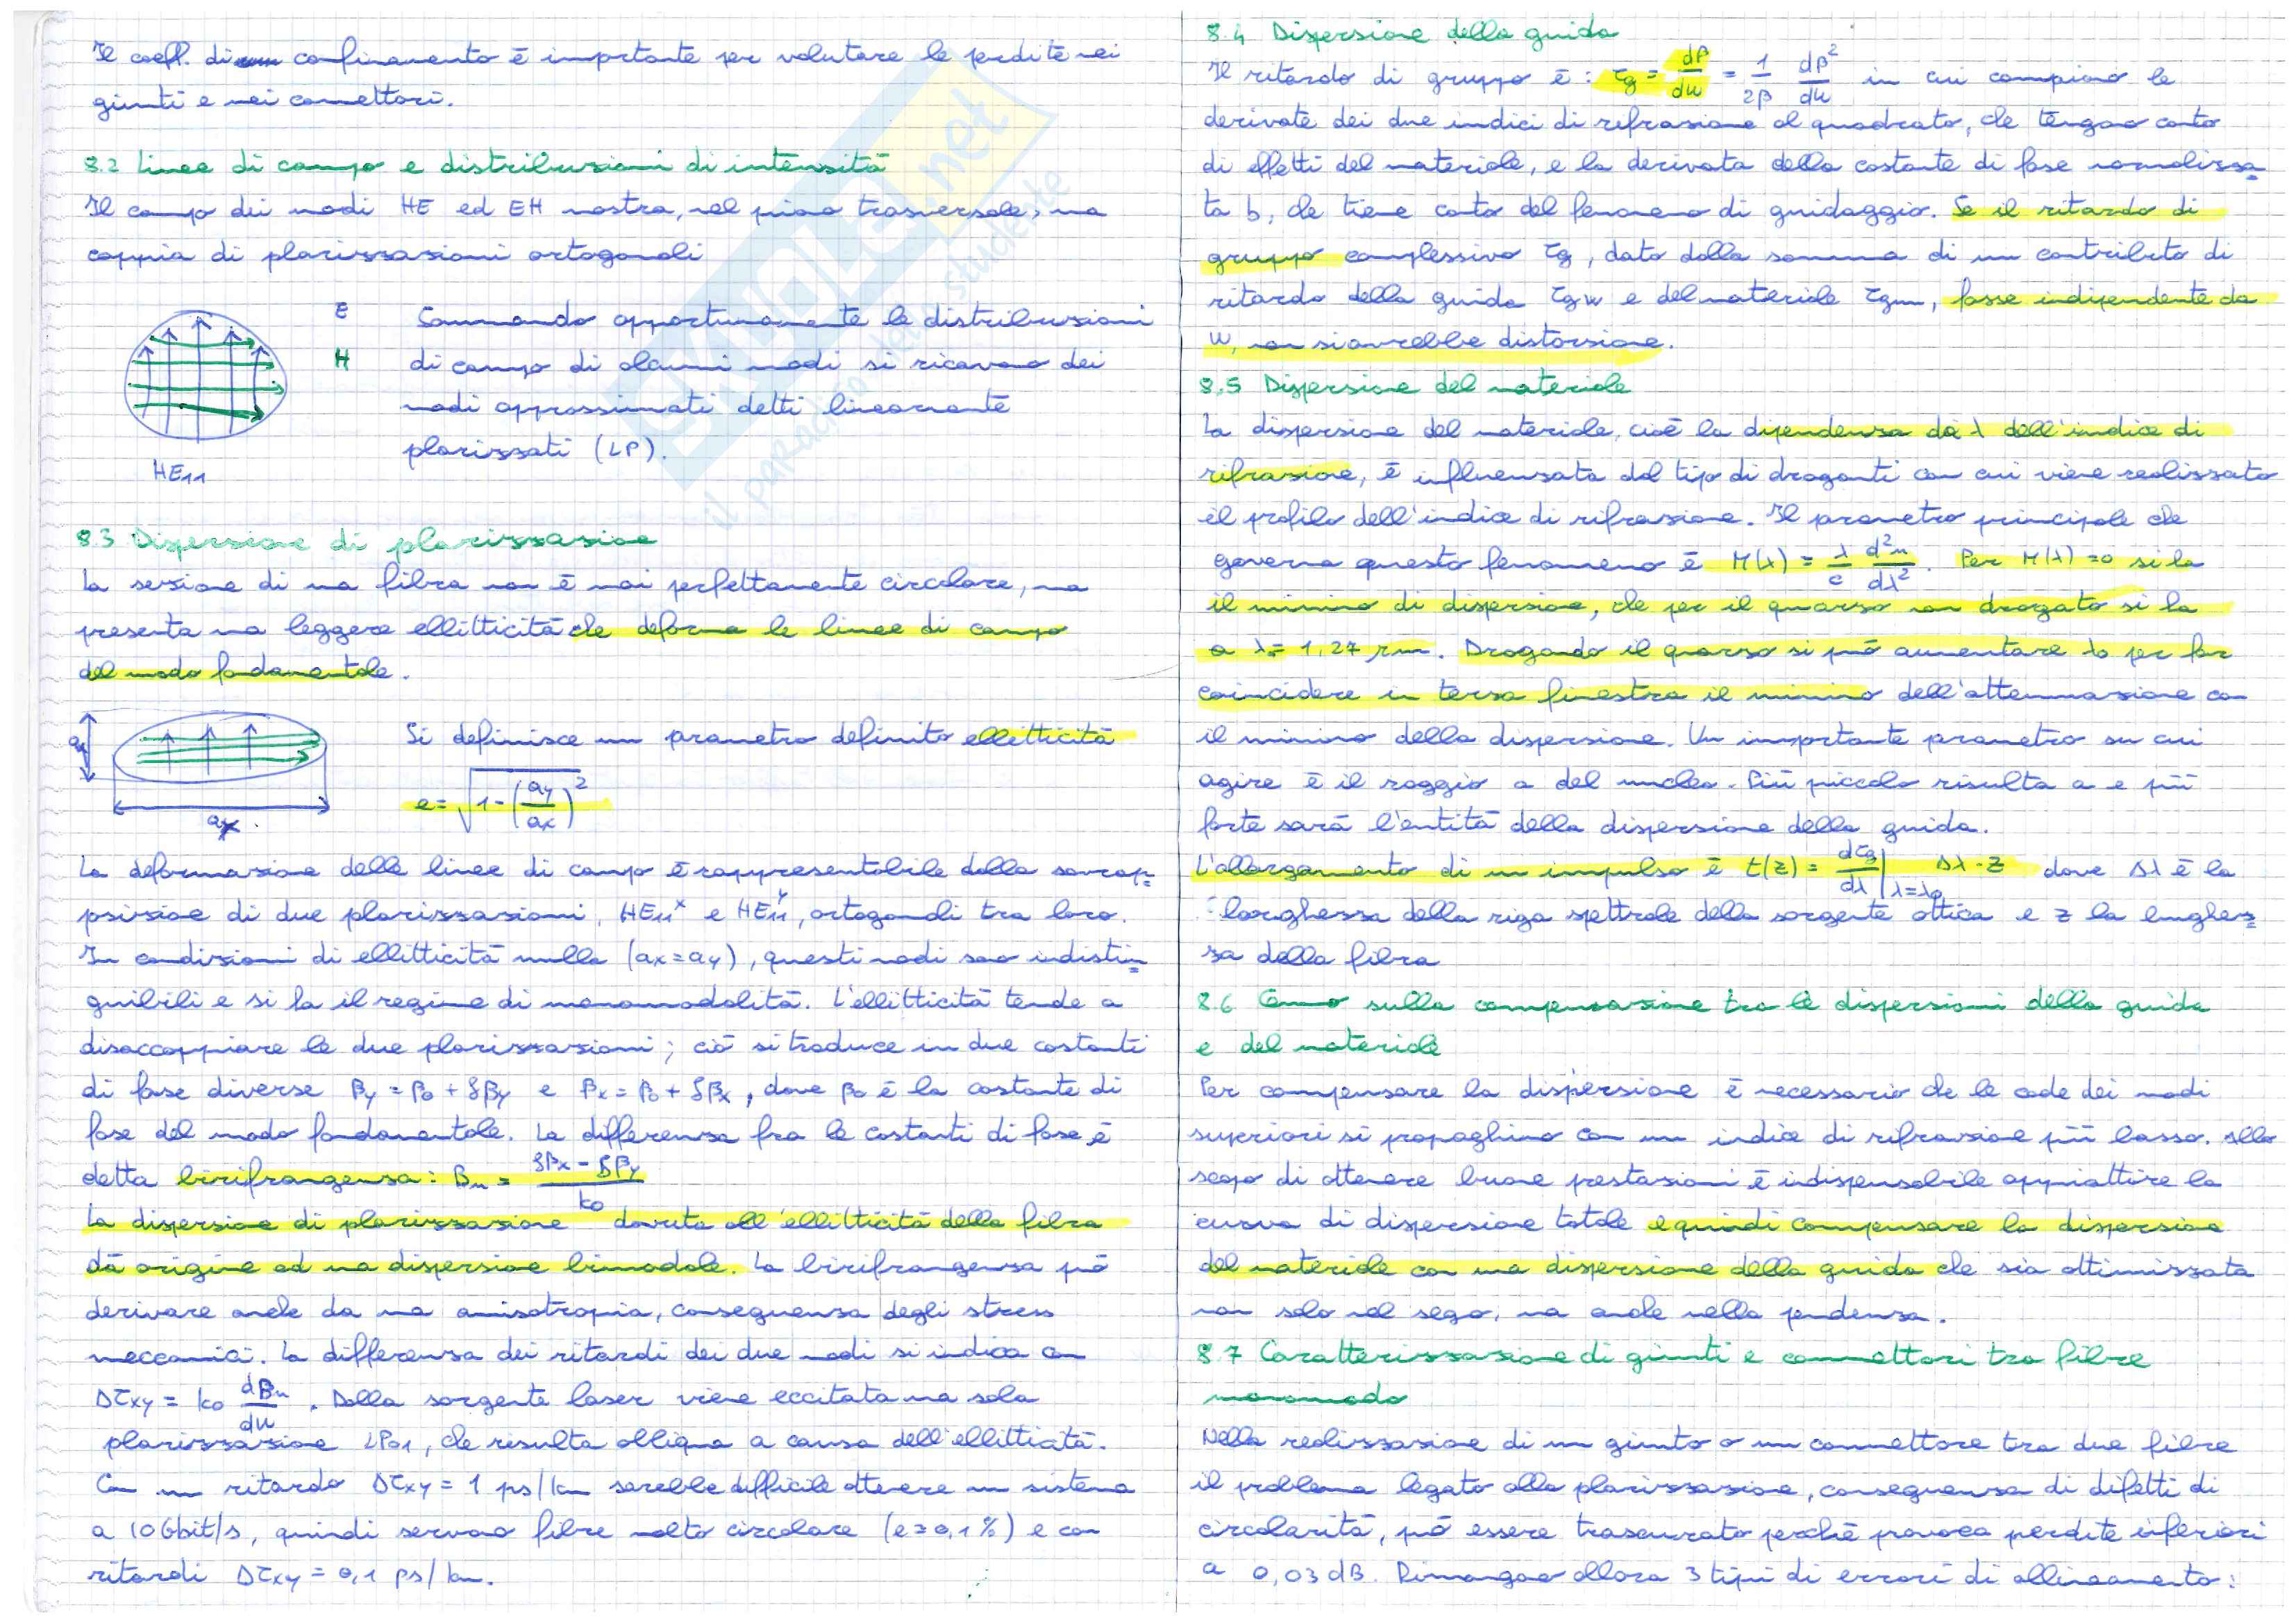 Il coeff. di confinamento è importante per valutare le perdite nei
giunti e nei connettori.
8.2 Linee di campo e distribuzioni di intensità
Il campo dei modi HE ed EH mostra, nel piano trasversale, una
coppia di polarizzazioni ortogonali
E
H
HE11
Sommando opportunamente le distribuzioni
di campo di alcuni modi si ricavano dei
modi approssimati detti linearmente
polarizzati (LP).
8.3 Dispersione di polarizzazione
La sezione di una fibra non è mai perfettamente circolare, ma
presenta una leggera ellitticità che deforma le linee di campo
del modo fondamentale.
ay
ax
Si definisce un parametro definito ellitticità
e = √(1 - (ay/ax)²)
La deformazione delle linee di campo è rappresentabile dalla sovrap-
posizione di due polarizzazioni, HE11^x e HE11^y, ortogonali tra loro.
In condizioni di ellitticità nulla (ax = ay), questi modi sono indistin-
guibili e si ha il regime di monomodalità. L'ellitticità tende a
disaccoppiare le due polarizzazioni; ciò si traduce in due costanti
di fase diverse βy = β0 + δβy e βx = β0 + δβx, dove β0 è la costante di
fase del modo fondamentale. La differenza fra le costanti di fase è
detta birifrangenza: Bn = (δβx - δβy)/k0
La dispersione di polarizzazione dovuta all'ellitticità della fibra
dà origine ad una dispersione bimodale. La birifrangenza può
derivare anche da una anisotropia, conseguenza degli stress
meccanici. La differenza dei ritardi dei due modi si indica con
Δτxy = k0 dBn/dω. Dalla sorgente laser viene eccitata una sola
polarizzazione LP01, che risulta obliqua a causa dell'ellitticità.
Con un ritardo Δτxy = 1 ps/km sarebbe difficile ottenere un sistema
a 10 Gbit/s, quindi servono fibre molto circolare (e = 0,1 %) e con
ritardi Δτxy = 0,1 ps/km.
8.4 Dispersione della guida
Il ritardo di gruppo è: τg = dβ/dω = 1/2β dβ²/dω in cui compaiono le
derivate dei due indici di rifrazione al quadrato, che tengono conto
di effetti del materiale, e la derivata della costante di fase normalizza-
ta b, che tiene conto del fenomeno di guidaggio. Se il ritardo di
gruppo complessivo τg, dato dalla somma di un contributo di
ritardo della guida τgw e del materiale τgm, fosse indipendente da
ω, non si avrebbe distorsione.
8.5 Dispersione del materiale
La dispersione del materiale, cioè la dipendenza da λ dell'indice di
rifrazione, è influenzata dal tipo di droganti con cui viene realizzato
il profilo dell'indice di rifrazione. Il parametro principale che
governa questo fenomeno è M(λ) = λ/c d²n/dλ². Per M(λ) = 0 si ha
il minimo di dispersione, che per il quarzo non drogato si ha
a λ0 = 1,27 μm. Drogando il quarzo si può aumentare λ0 per far
coincidere in terza finestra il minimo dell'attenuazione con
il minimo della dispersione. Un importante parametro su cui
agire è il raggio a del nucleo. Più piccolo risulta a e più
forte sarà l'entità della dispersione della guida.
L'allargamento di un impulso è t(z) = dτg/dλ|λ=λ0 Δλ·z dove Δλ è la
larghezza della riga spettrale della sorgente ottica e z la lunghez-
za della fibra
8.6 Cenno sulla compensazione tra le dispersioni della guida
e del materiale
Per compensare la dispersione è necessario che le code dei modi
superiori si propaghino con un indice di rifrazione più basso. Allo
scopo di ottenere buone prestazioni è indispensabile appiattire la
curva di dispersione totale e quindi compensare la dispersione
del materiale con una dispersione della guida che sia ottimizzata
non solo nel segno, ma anche nella pendenza.
8.7 Caratterizzazione di giunti e connettori tra fibre
monomodo
Nella realizzazione di un giunto o un connettore tra due fibre
il problema legato alla polarizzazione, conseguenza di difetti di
circolarità, può essere trascurato perchè provoca perdite inferiori
a 0,03 dB. Rimangono allora 3 tipi di errori di allineamento:
SKUOLA.net
il paradiso dello studente